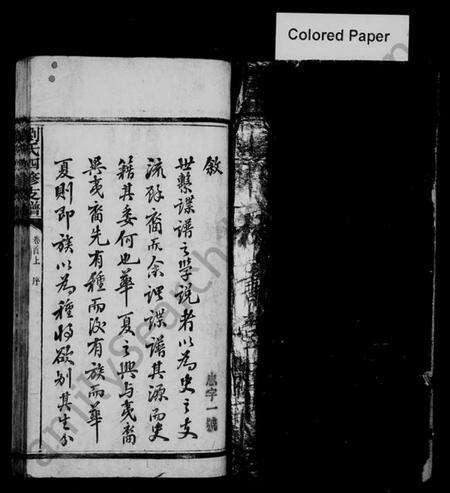 Colored Paper
敘
世繫諜譜之學說者以為史之支
流餘裔而余謂諜譜其源而史
籍其委何也華夏之興与夷裔
異夷裔先有種而後有族而華
夏則即族以為種將欲別其生分
忠字一號
劉氏四修支譜
卷首上 序